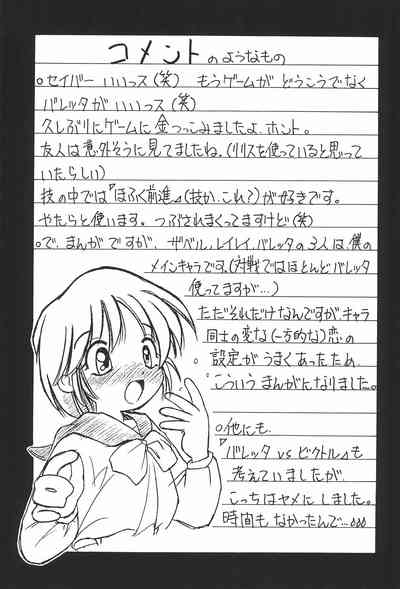 コメントのようなもの
○セイバー いいっス(笑) もうゲームが どうこうでなく
バレッタが いいっス(笑)
久しぶりにゲームに金つっこみましたよ、ホント。
友人は意外そうに見てましたね。(リリスを使っていると思って
いたらしい)
技の中では『ほふく前進』(技か、これ?)が好きです。
やたらと使います。つぶされまくってますけど(笑)
○で、まんがですが、ザベル、レイレイ、バレッタの3人は、僕の
メインキャラです。(対戦ではほとんどバレッタ
使ってますが…)
ただそれだけなんですが、キャラ
同士の変な(一方的な)恋の
設定が うまくあったため、
こういうまんがになりました。
○他にも、
『バレッタ vs ビクトル』も
考えていましたが、
こっちはヤメにしました。
時間もなかったんで…